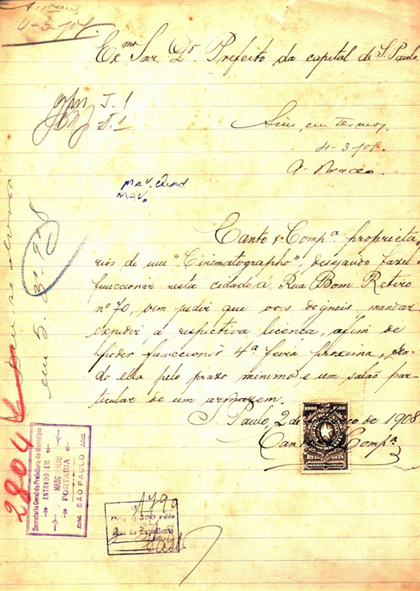 4-3-908.
Exmo Snr. Dr. Prefeito da capital de S. Paulo.
J. 1
Sim, em termos.
4-3-908.
Canto & Compª proprieta
rios de um "Cinematographo", desejando fazel-o
funccionar nesta cidade á Rua Bom Retiro
nº 70, vem pedir que vos digneis mandar
expedir a respectiva licença, afim de
poder funccionar 4ª feira proxima, sen-
do ella pelo prazo minimo e um salão par-
ticular de um armazem.
S. Paulo, 2 de 1908
Compª
2804
Secretaria Geral da Prefeitura do Municipio
ENTRADO EM
PORTARIA
SÃO PAULO
em 5.3.908